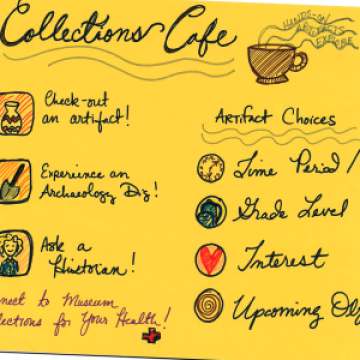 Collections Cafe
HANDS-ON
ARTIFACTS
EXPLORE
Check-out
an artifact!
Experience an
Archaeology Dig!
Ask a
Historian!
nnect to Museum
llections for Your Health!
Artifact Choices
Time Period
Grade Level
Interest
Upcoming